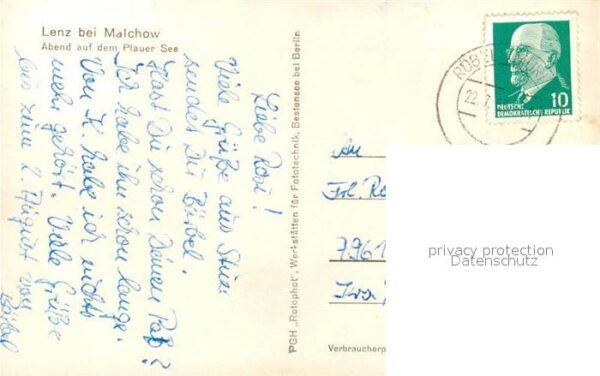 Lenz bei Malchow
Abend auf dem Plauer See
Liebe Rosi!
Viele Grüße aus Stuer
sendet Dir Bärbel.
Hast Du schon Deinen Paß?
Ich habe ihn schon lange.
Von K. habe ich nichts
mehr gehört. Viele Grüße
bis zum 2. August von
Bärbel
PGH „Rotophot", Werkstätten für Fototechnik, Bestensee bei Berlin
RÖBEL
22.
DEUTSCHE
DEMOKRATISCHE REPUBLIK
10
An
Frl. Ro
7961
privacy protection
Datenschutz
Verbraucherp